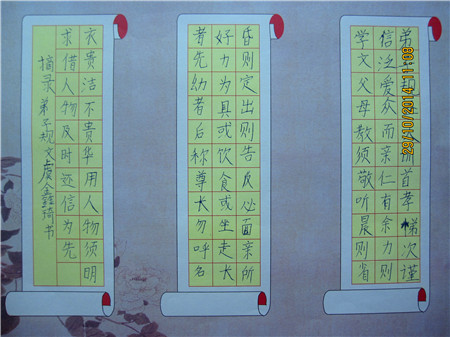 弟子规圣人训首孝悌次谨
信泛爱众而亲仁有余力则
学文父母教须敬听晨则省
昏则定出则告反必面亲所
好力为具或饮食或坐走长
者先幼者后称尊长勿呼名
衣贵洁不贵华用人物须明
求借人物及时还信为先
摘录弟子规文虞鑫琦书
29/10/2014 11:08